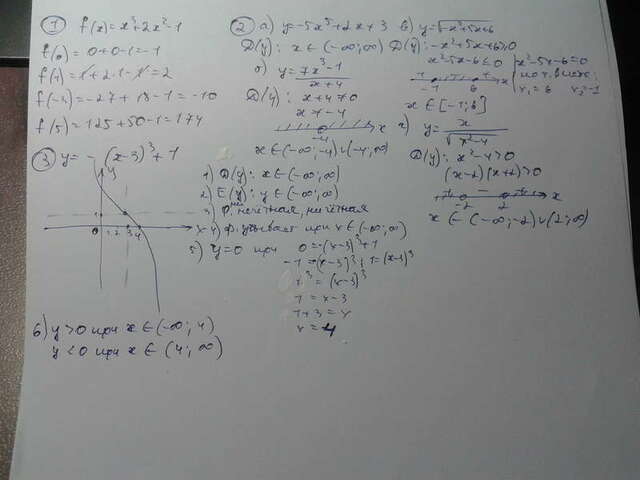 ① f(x) = x³+2x²-1
f(0) = 0+0-1 = -1
f(1) = 1+2·1-1 = 2
f(-3) = -27+18-1 = -10
f(5) = 125+50-1 = 174
② а) y=5x⁵+2x+3
D(y): x∈(-∞;∞)
б) y=7x²-1/x+4
D(y): x+4≠0
x≠-4
-4 x
x∈(-∞;-4)∪(-4;∞)
в) y=√-x²+5x+6
D(y): -x²+5x+6≥0
x²-5x-6≤0
x²-5x-6=0
x₁=6 x₂=-1
+ - +
-1 6 x
x∈[-1;6]
г) y= x/√x²-4
D(y): x²-4>0
(x-2)(x+2)>0
+ - +
-2 2 x
x∈(-∞;-2)∪(2;∞)
③ y= -(x-3)³+1
y
1
0 1 2 3 4 x
1) D(y): x∈(-∞;∞)
2) E(y): y∈(-∞;∞)
4) ф. убывает при x∈(-∞;∞)
5) y=0 при 0=-(x-3)³+1
-1=-(x-3)³; 1=(x-3)³
1³=(x-3)³
1=x-3
1+3=x
x=4
6) y>0 при x∈(-∞;4)
y<0 при x∈(4;∞)